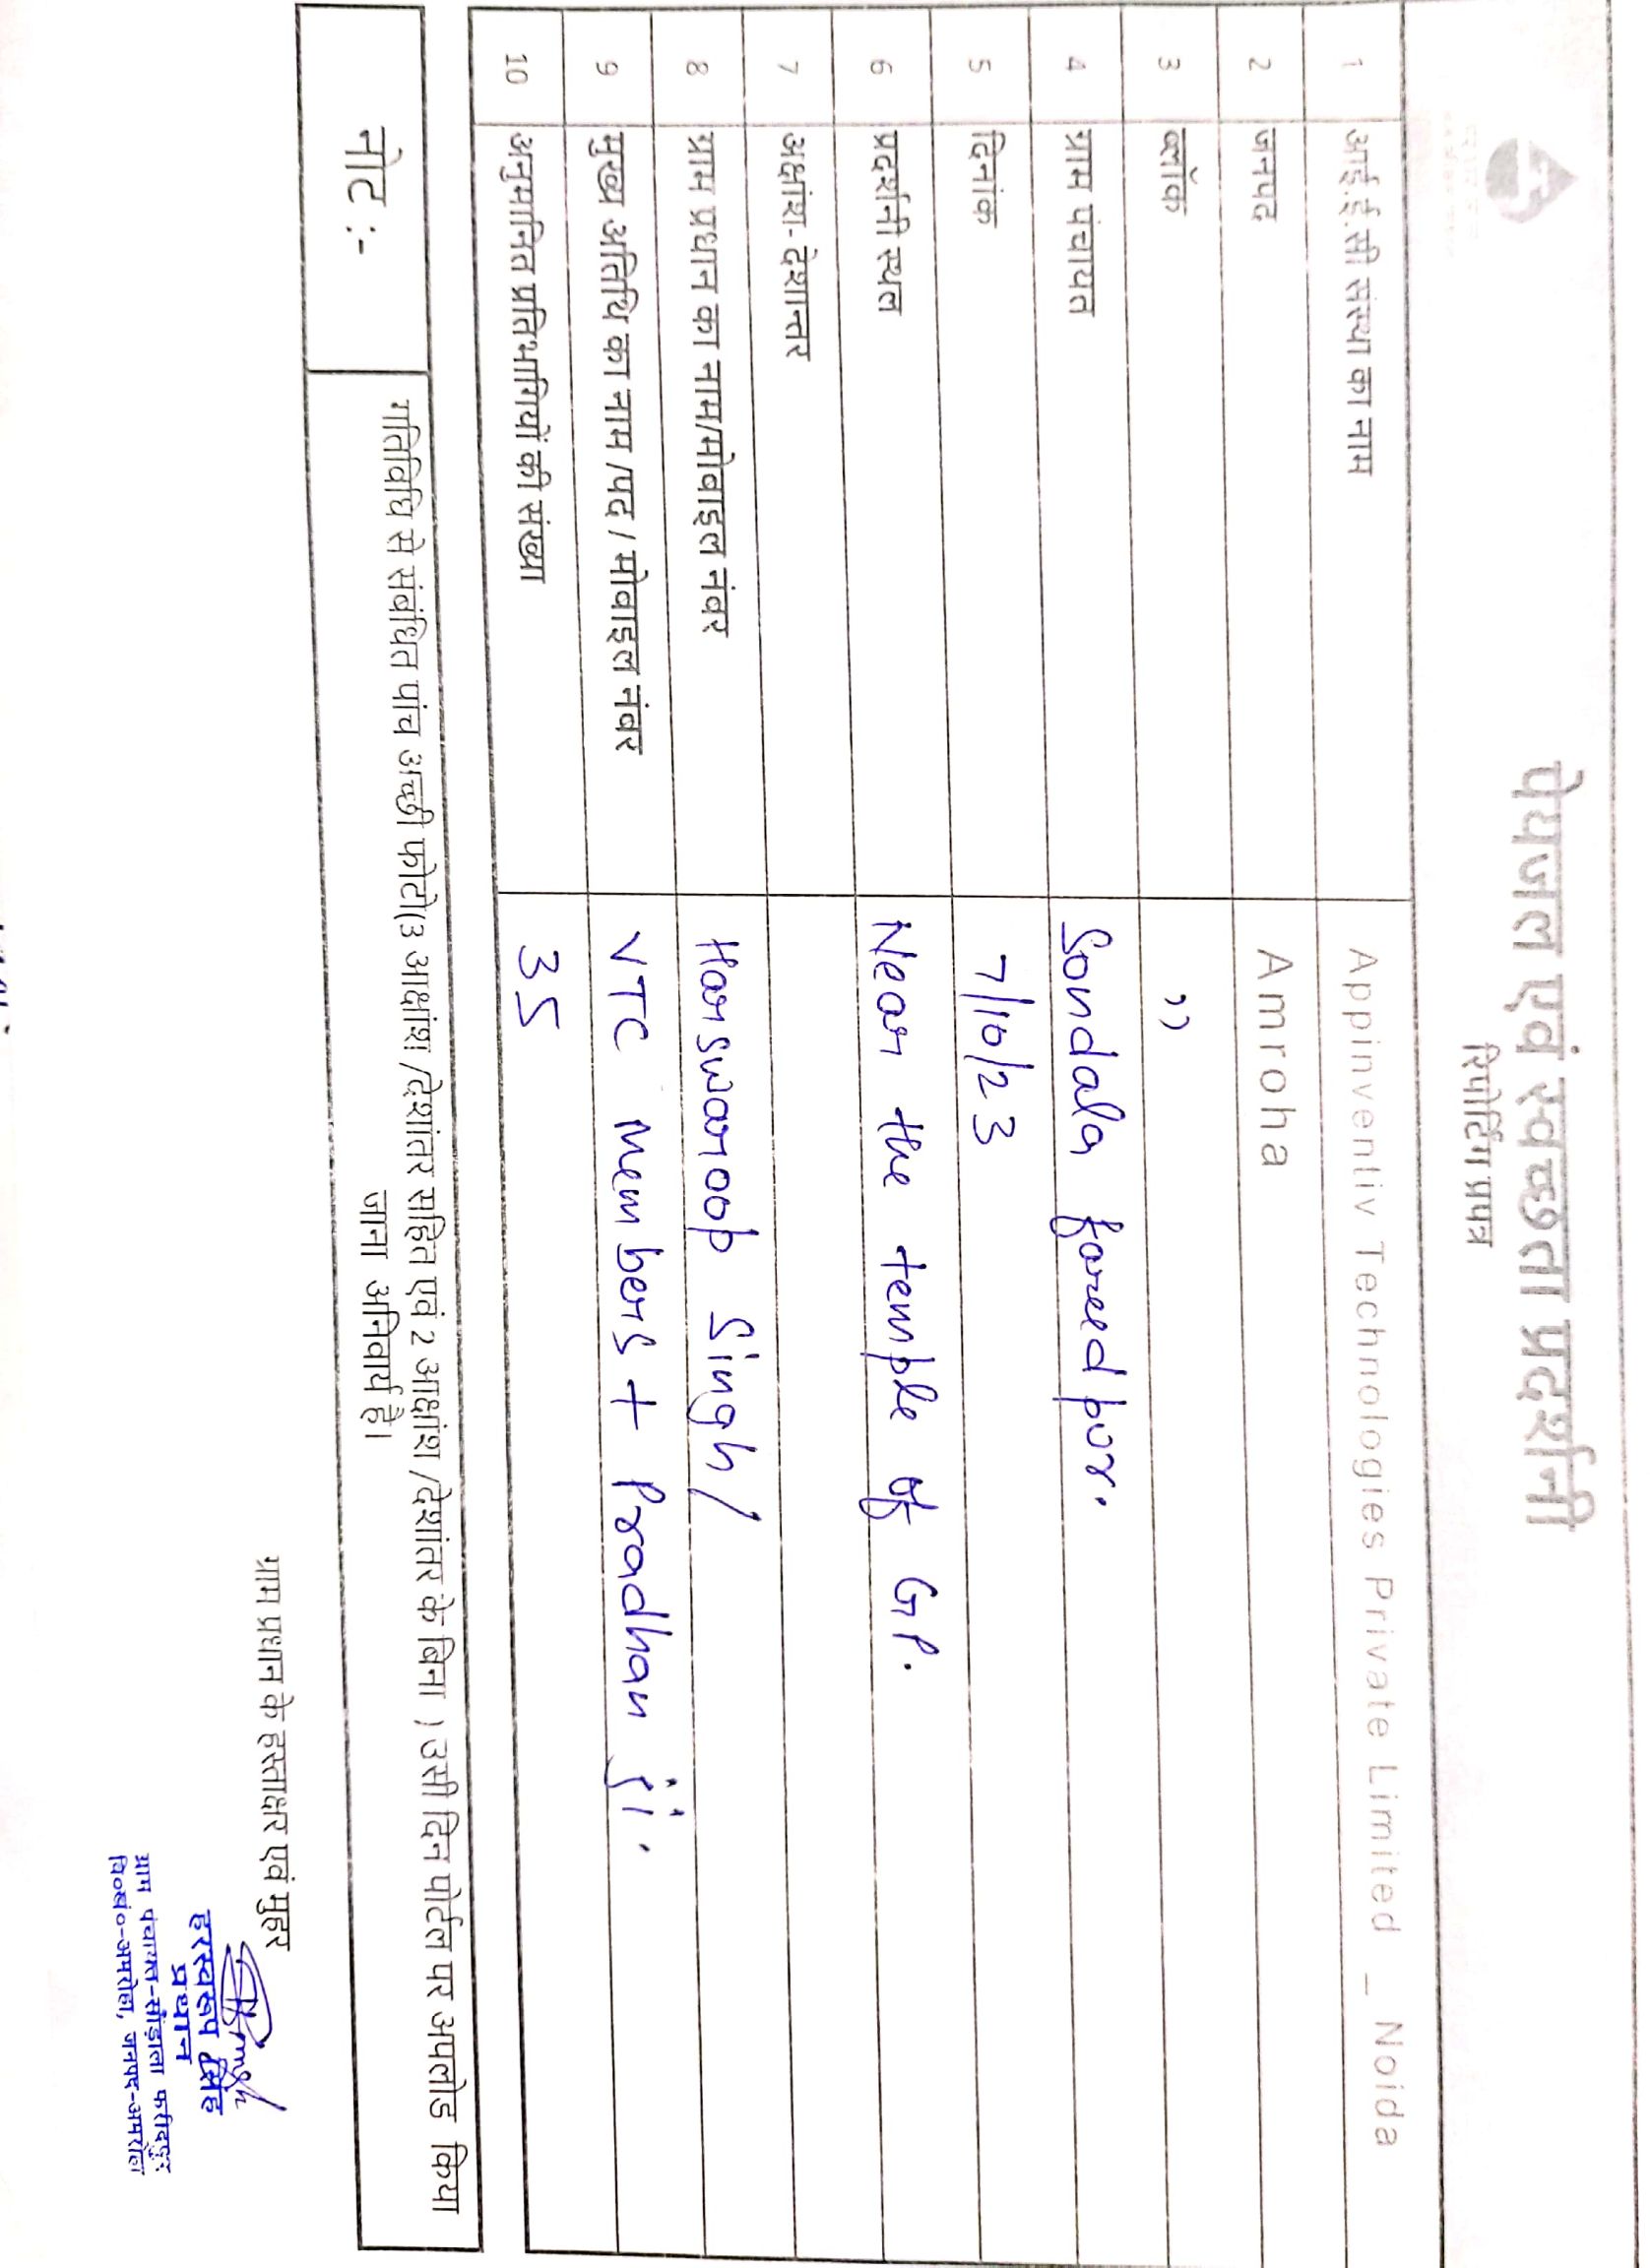 पेयजल एवं स्वच्छता प्रदर्शनी
रिपोर्टिंग प्रपत्र
1 आई.ई.सी संस्था का नाम Appinventiv Technologies Private Limited _ Noida
2 जनपद Amroha
3 ब्लॉक ,,
4 ग्राम पंचायत Sondala fareedpur.
5 दिनांक 7/10/23
6 प्रदर्शनी स्थल Near the temple of GP.
7 अक्षांश- देशान्तर
8 ग्राम प्रधान का नाम/मोबाइल नंबर Harswaroop Singh/
9 मुख्य अतिथि का नाम /पद / मोबाइल नंबर VTC Members + Pradhan ji.
10 अनुमानित प्रतिभागियों की संख्या 35
नोट :-
गतिविधि से संबंधित पांच अच्छी फोटो(3 आक्षांश /देशांतर सहित एवं 2 आक्षांश /देशांतर के बिना ) उसी दिन पोर्टल पर अपलोड किया
जाना अनिवार्य है।
ग्राम प्रधान के हस्ताक्षर एवं मुहर
हरस्वरूप सिंह
प्रधान
ग्राम पंचायत-सौंडाला फरीदपुर
वि०खं०-अमरोहा, जनपद-अमरोहा